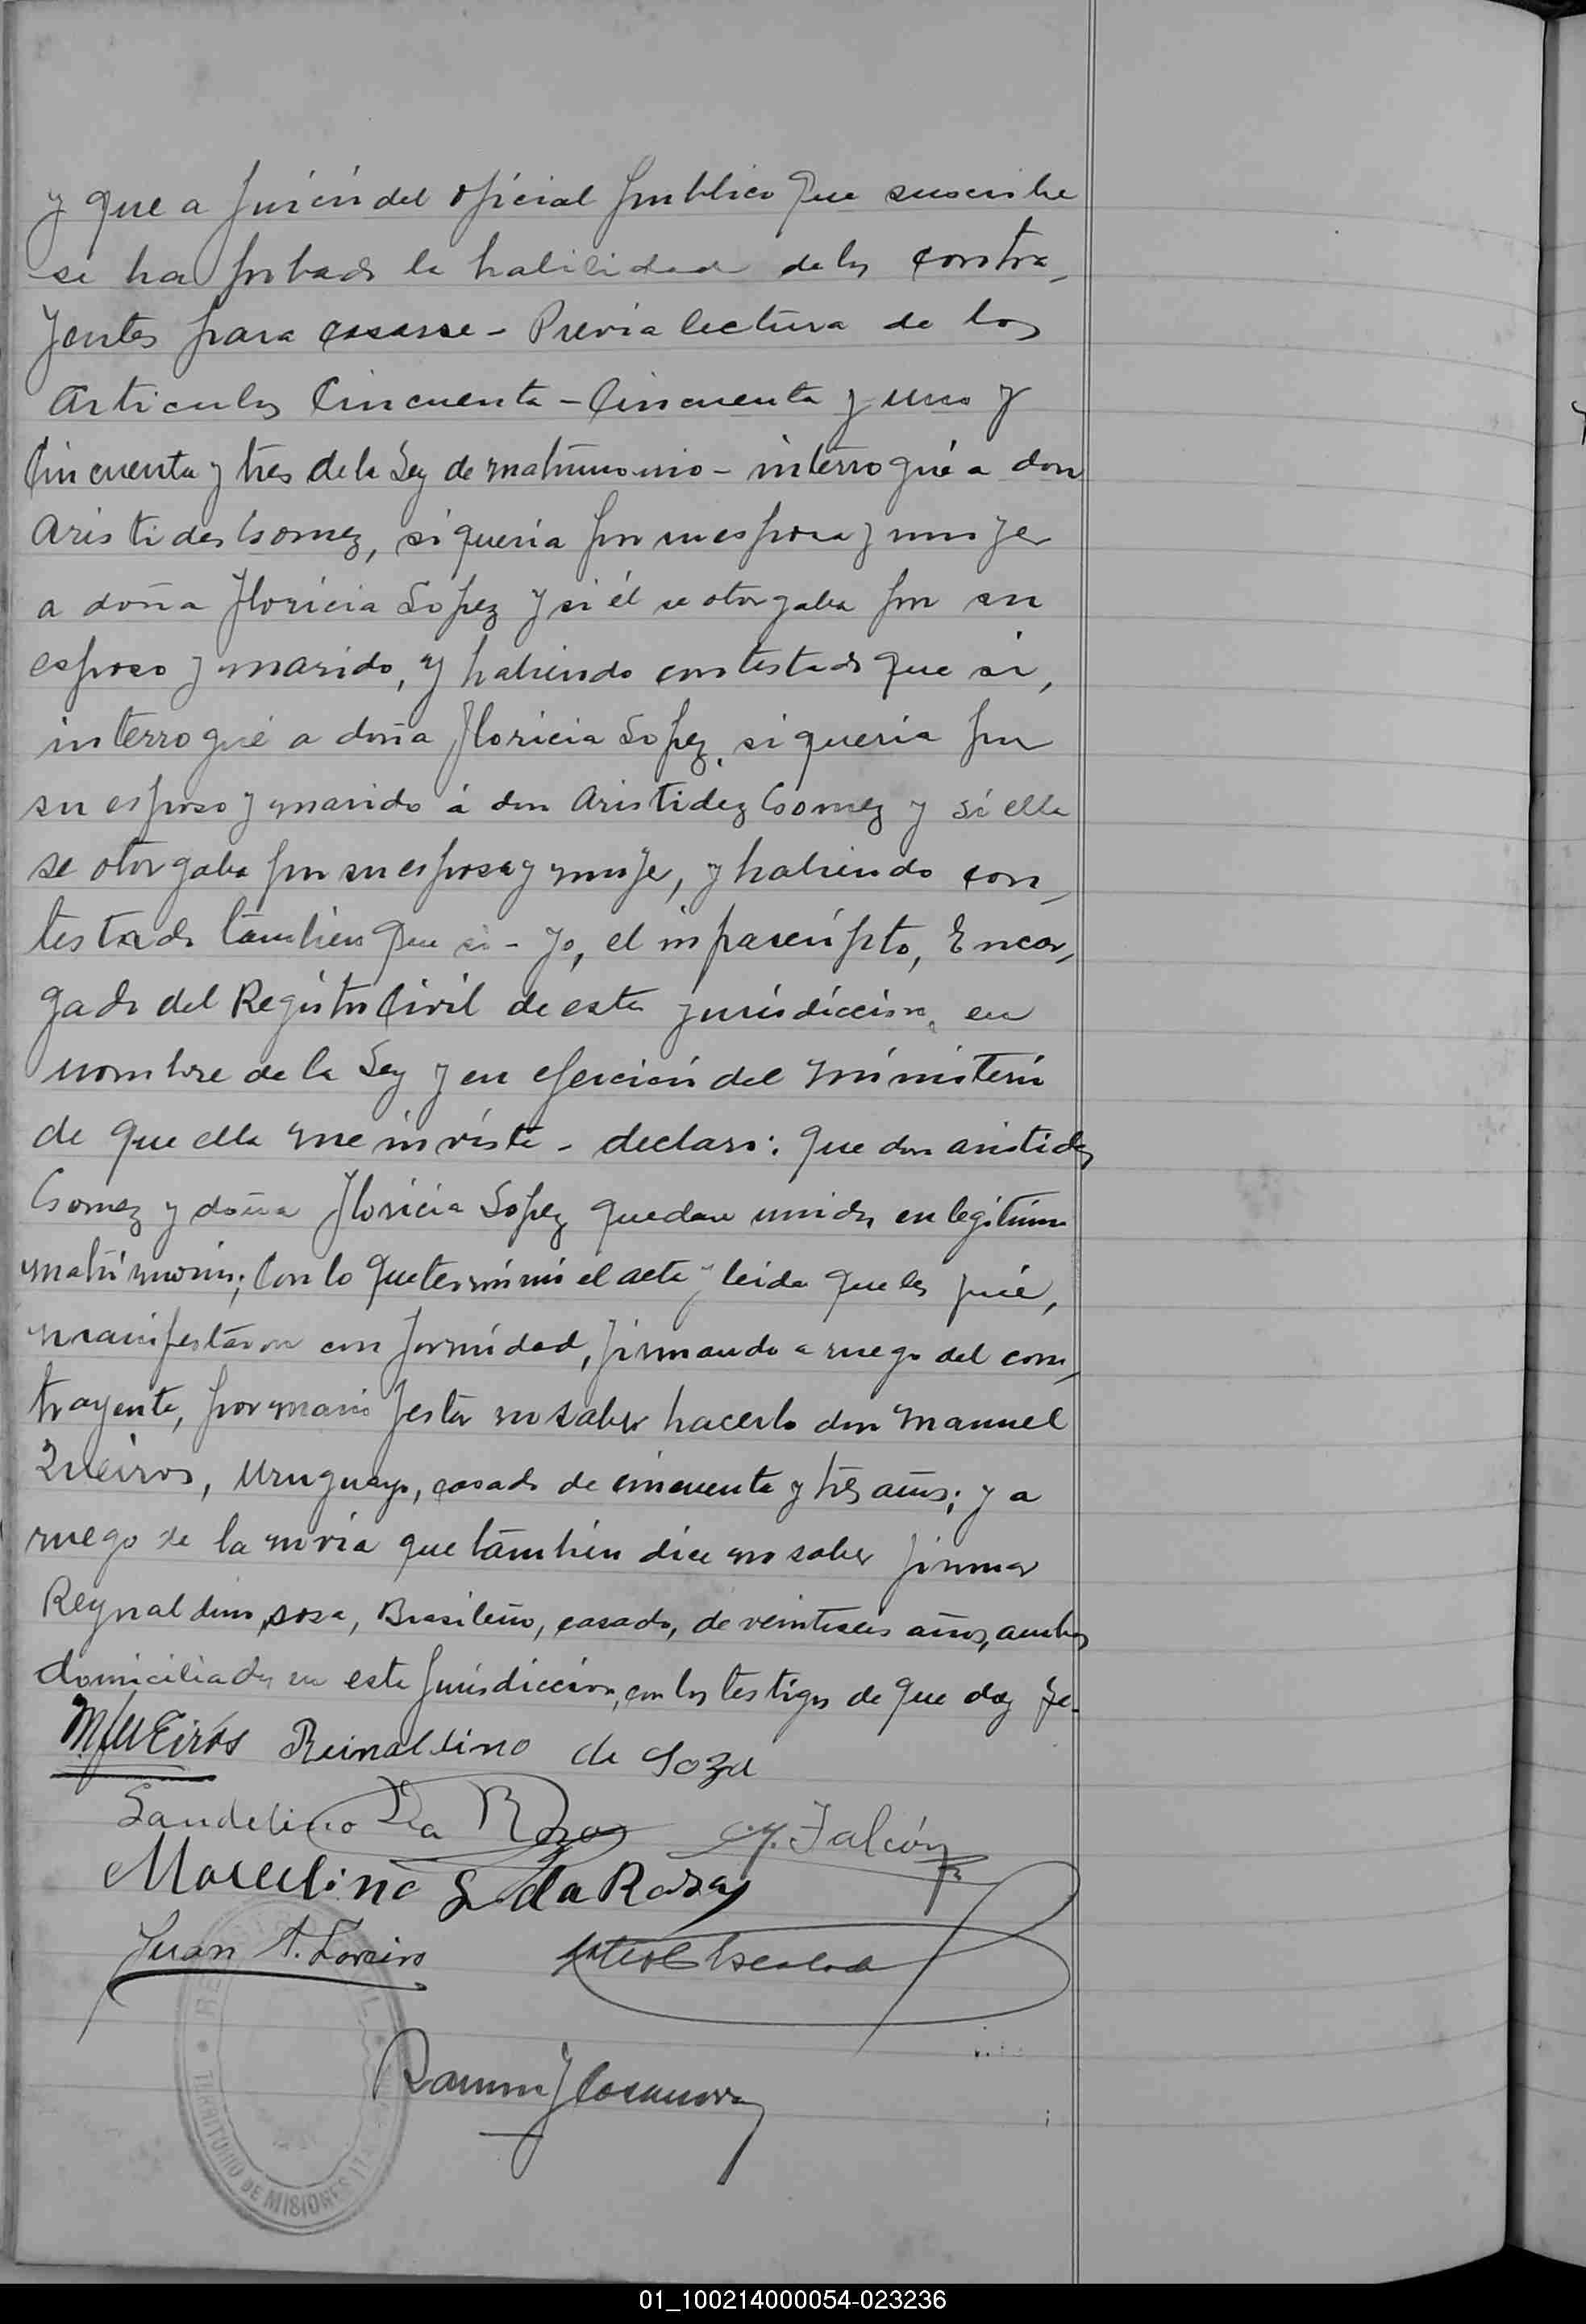 y que a juicio del oficial publico que suscribe
se ha probado la habilidad de los contra-
yentes para casarse - Previa lectura de los
Articulos Cincuenta - Cincuenta y uno y
Cincuenta y tres de la Ley de matrimonio - interrogué a don
Aristides Gomez, si queria por su esposa y mujer
a doña Floricia Lopez y si él se otorgaba por su
esposo y marido, y habiendo contestado que si,
interrogué a doña Floricia Lopez, si queria por
su esposo y marido á don Aristidez Gomez y si ella
se otorgaba por su esposa y mujer, y habiendo con-
testado tambien que si - Yo, el infrascripto, Encar-
gado del Registro Civil de esta jurisdiccion, en
nombre de la Ley y en ejercicio del ministerio
de que ella me inviste - declaro: que don aristides
Gomez y doña Floricia Lopez quedan unidos en legitimo
matrimonio; Con lo que terminó el acta y leida que les fué,
manifestaron conformidad, firmando a ruego del con-
trayente, por manifestar no saber hacerlo don Manuel
Queiros, Uruguayo, casado de cincuenta y tres años; y a
ruego de la novia que tambien dice no saber firmar
Reynaldino sosa, Brasileño, casado, de veintiseis años, ambos
domiciliados en esta jurisdiccion, con los testigos de que doy fe.
MQUEiros Reinaldino de Soza
Landelino Da Roza Falcón
Marcelino S da Roza
Juan A. Loreiro
Ramon J Casanova
TERRITORIO DE MISIONES
01_100214000054-023236